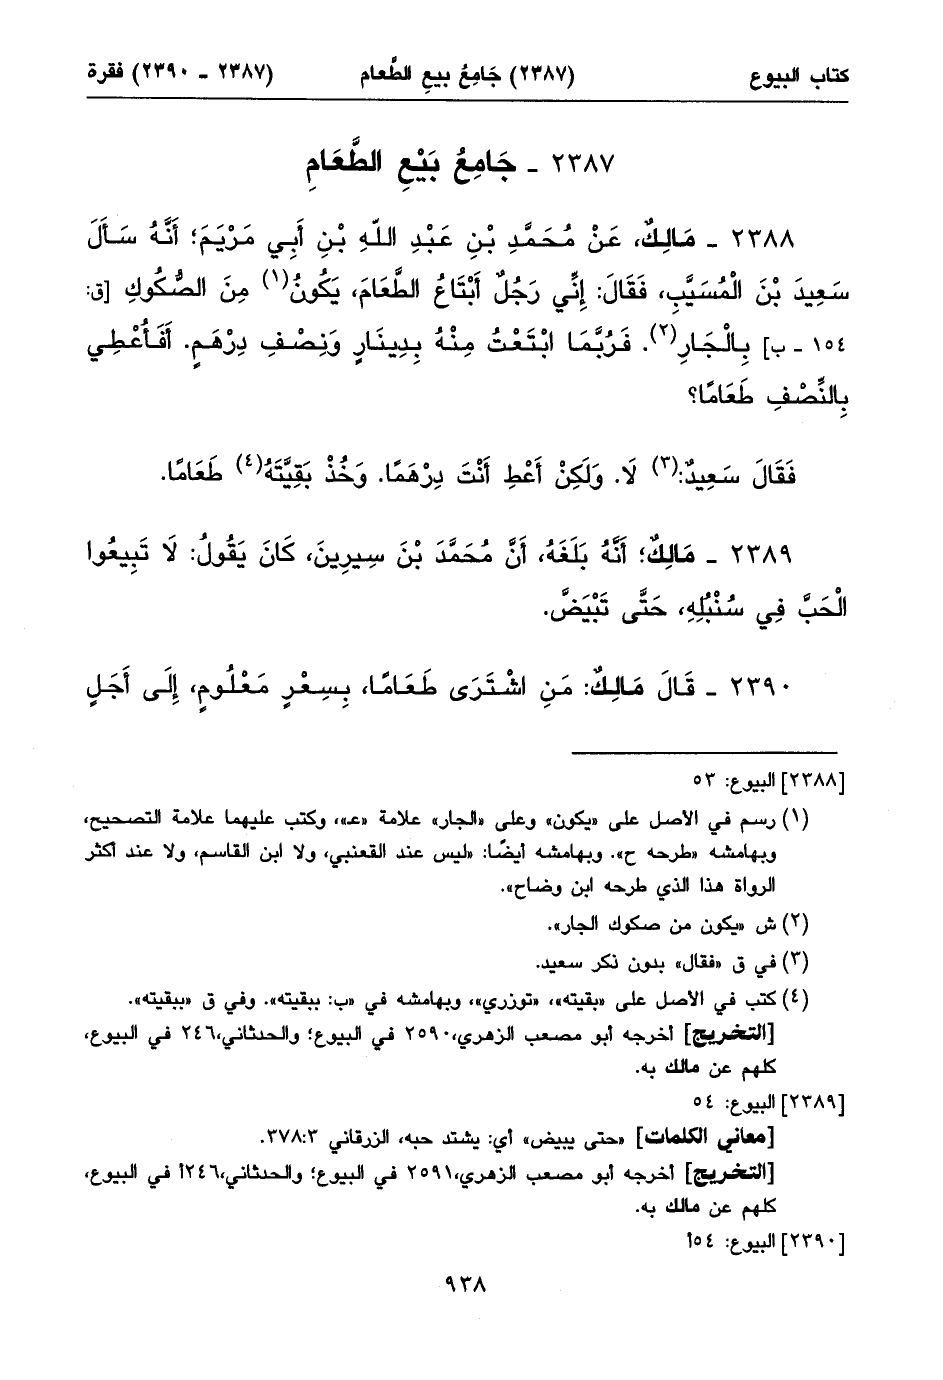 كتاب البيوع (٢٣٨٧) جَامِعُ بيعِ الطَّعام (٢٣٨٧ - ٢٣٩٠) فقرة
٢٣٨٧ - جَامِعُ بَيْعِ الطَّعَامِ
٢٣٨٨ - مَالِكٌ، عَنْ مُحَمَّدِ بْنِ عَبْدِ اللّهِ بْنِ أَبِي مَرْيَمَ؛ أَنَّهُ سَأَلَ
سَعِيدَ بْنَ الْمُسَيَّبِ، فَقَالَ: إِنِّي رَجُلٌ أَبْتَاعُ الطَّعَامَ، يَكُونُ(١) مِنَ الصُّكُوكِ [ق:
١٥٤ - ب] بِالْجَارِ(٢). فَرُبَّمَا ابْتَعْتُ مِنْهُ بِدِينَارٍ وَنِصْفِ دِرْهَمٍ. أَفَأُعْطِي
بِالنِّصْفِ طَعَامًا؟
فَقَالَ سَعِيدٌ:(٣) لَا. وَلَكِنْ أَعْطِ أَنْتَ دِرْهَمًا. وَخُذْ بَقِيَّتَهُ(٤) طَعَامًا.
٢٣٨٩ - مَالِكٌ؛ أَنَّهُ بَلَغَهُ، أَنَّ مُحَمَّدَ بْنَ سِيرِينَ، كَانَ يَقُولُ: لَا تَبِيعُوا
الْحَبَّ فِي سُنْبُلِهِ، حَتَّى تَبْيَضَّ.
٢٣٩٠ - قَالَ مَالِكٌ: مَنِ اشْتَرَى طَعَامًا، بِسِعْرٍ مَعْلُومٍ، إِلَى أَجَلٍ
[٢٣٨٨] البيوع: ٥٣
(١) رسم في الأصل على «يكون» وعلى «الجار» علامة «عـ»، وكتب عليهما علامة التصحيح،
وبهامشه «طرحه ح». وبهامشه أيضًا: «ليس عند القعنبي، ولا ابن القاسم، ولا عند أكثر
الرواة هذا الذي طرحه ابن وضاح».
(٢) ش «يكون من صكوك الجار».
(٣) في ق «فقال» بدون ذكر سعيد.
(٤) كتب في الأصل على «بقيته»، «توزري»، وبهامشه في «ب: ببقيته». وفي ق «ببقيته».
[التخريج] أخرجه أبو مصعب الزهري، ٢٥٩٠ في البيوع؛ والحدثاني، ٢٤٦ في البيوع،
كلهم عن مالك به.
[٢٣٨٩] البيوع: ٥٤
[معاني الكلمات] «حتى يبيض» أي: يشتد حبه، الزرقاني ٣٧٨:٣.
[التخريج] أخرجه أبو مصعب الزهري، ٢٥٩١ في البيوع؛ والحدثاني، ٢٤٦أ في البيوع،
كلهم عن مالك به.
[٢٣٩٠] البيوع: ٥٤أ
٩٣٨